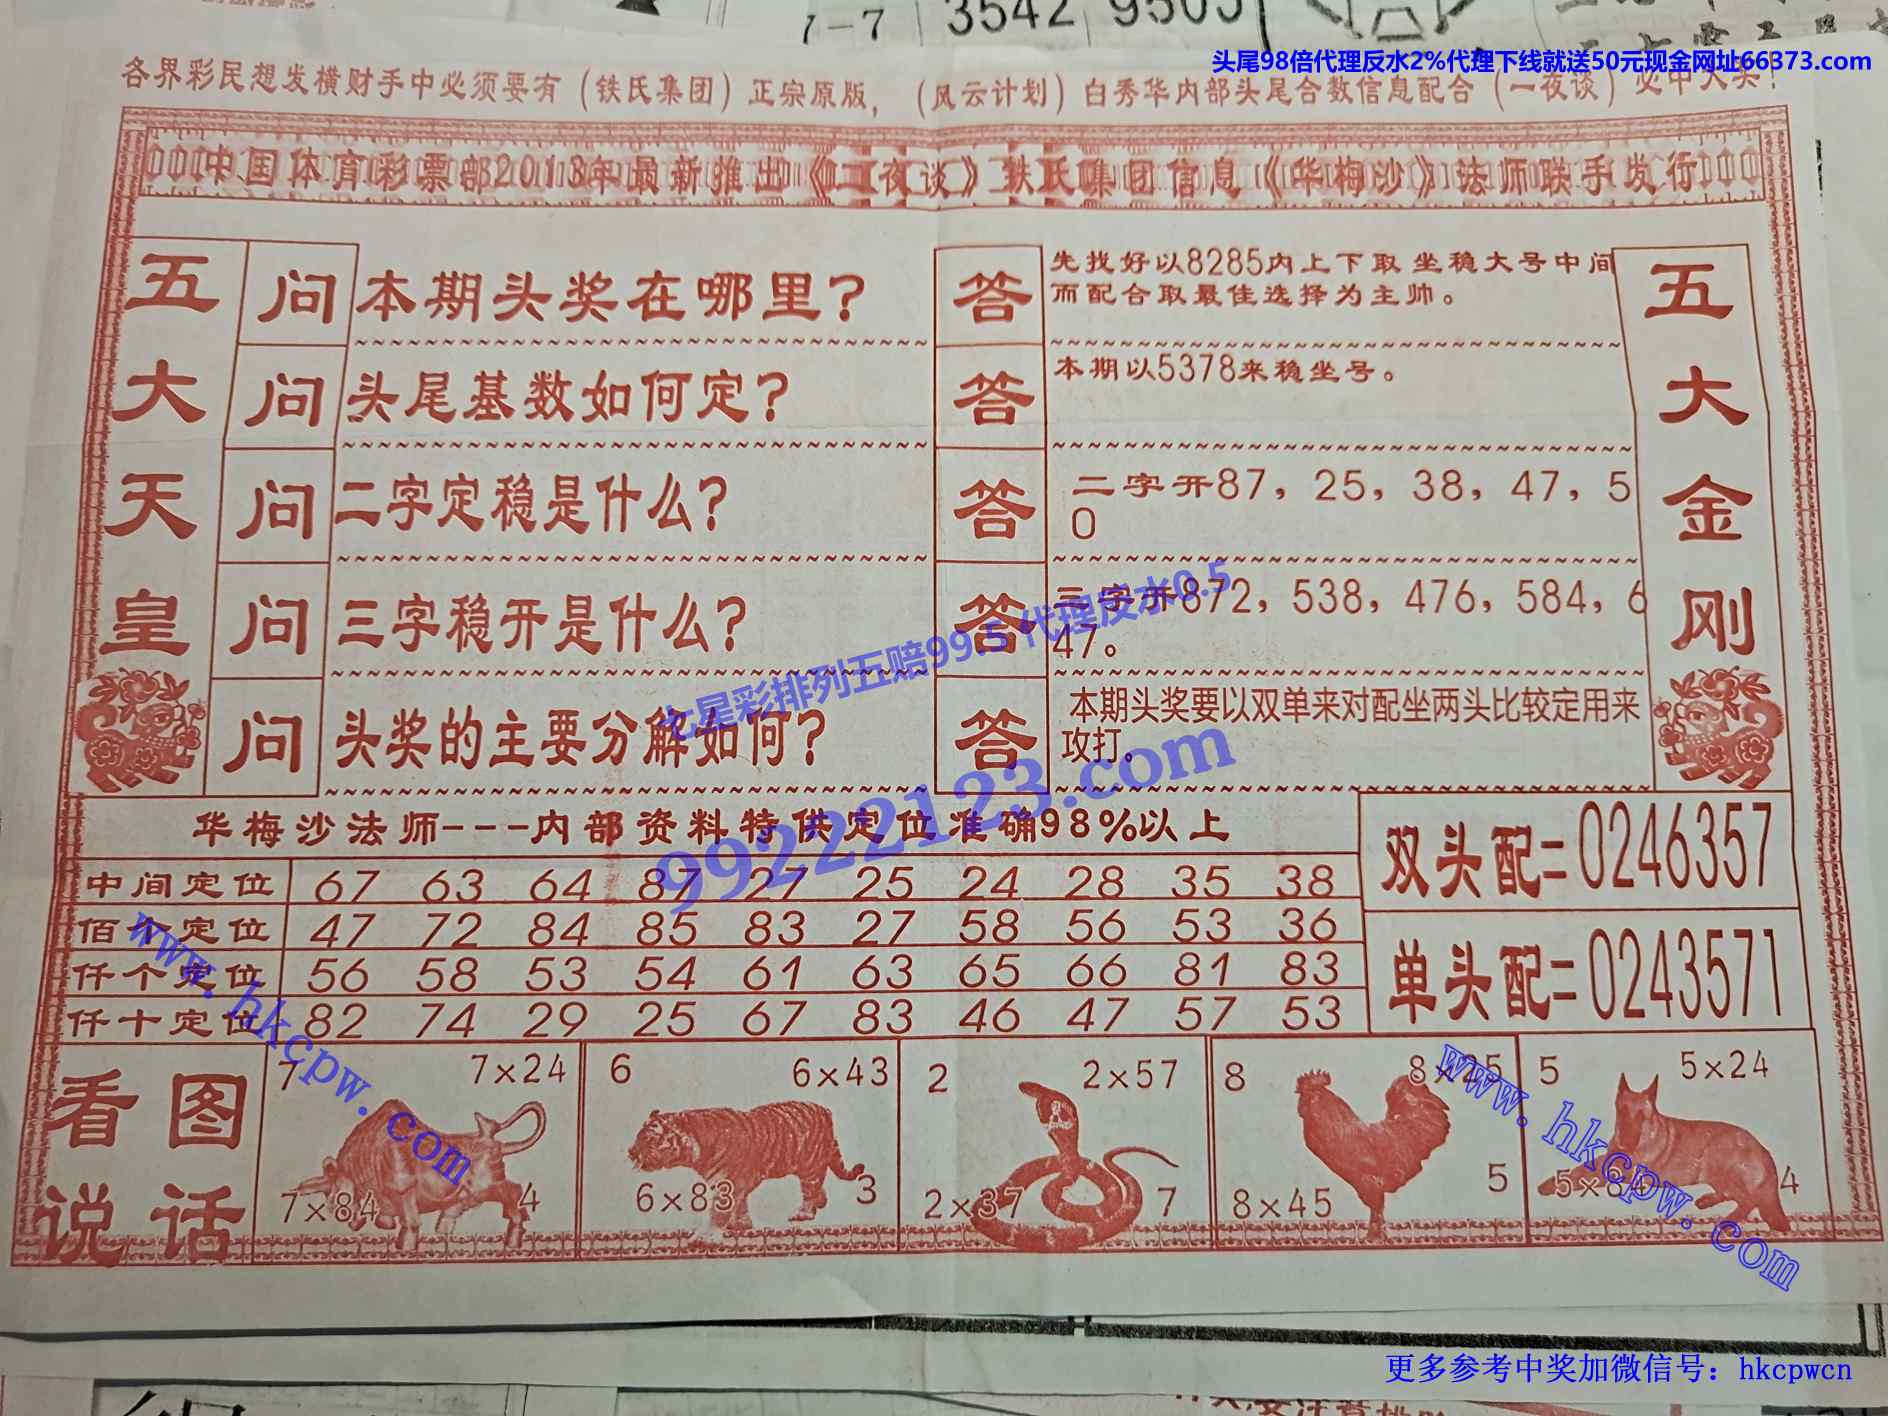 1-7 3542 9505
头尾98倍代理反水2%代理下线就送50元现金网址66373.com
各界彩民想发横财手中必须要有（铁氏集团）正宗原版，（风云计划）白秀华内部头尾合数信息配合（一夜谈）必中大奖！
中国体育彩票部2018年最新推出《一夜谈》铁氏集团信息《华梅沙》法师联手发行
五大天皇
问 本期头奖在哪里？
答 先找好以8285内上下取坐稳大号中间
而配合取最佳选择为主帅。
问 头尾基数如何定？
答 本期以5378来稳坐号。
问 二字定稳是什么？
答 二字开87，25，38，47，5
0
问 三字稳开是什么？
答 三字开872，538，476，584，6
47。
问 头奖的主要分解如何？
答 本期头奖要以双单来对配坐两头比较定用来
攻打。
五大金刚
七星彩排列五赔99.5 代理反水0.5
99222123.com
华梅沙法师---内部资料特供定位准确98%以上
中间定位 67 63 64 87 27 25 24 28 35 38
佰个定位 47 72 84 85 83 27 58 56 53 36
仟个定位 56 58 53 54 61 63 65 66 81 83
仟十定位 82 74 29 25 67 83 46 47 57 53
双头配=0246357
单头配=0243571
www.hkcpw.com
www.hkcpw.com
看图
说话
7 7×24
7×84 4
6 6×43
6×83 3
2 2×57
2×37 7
8 8×25
8×45 5
5 5×24
5×84 4
更多参考中奖加微信号：hkcpwcn